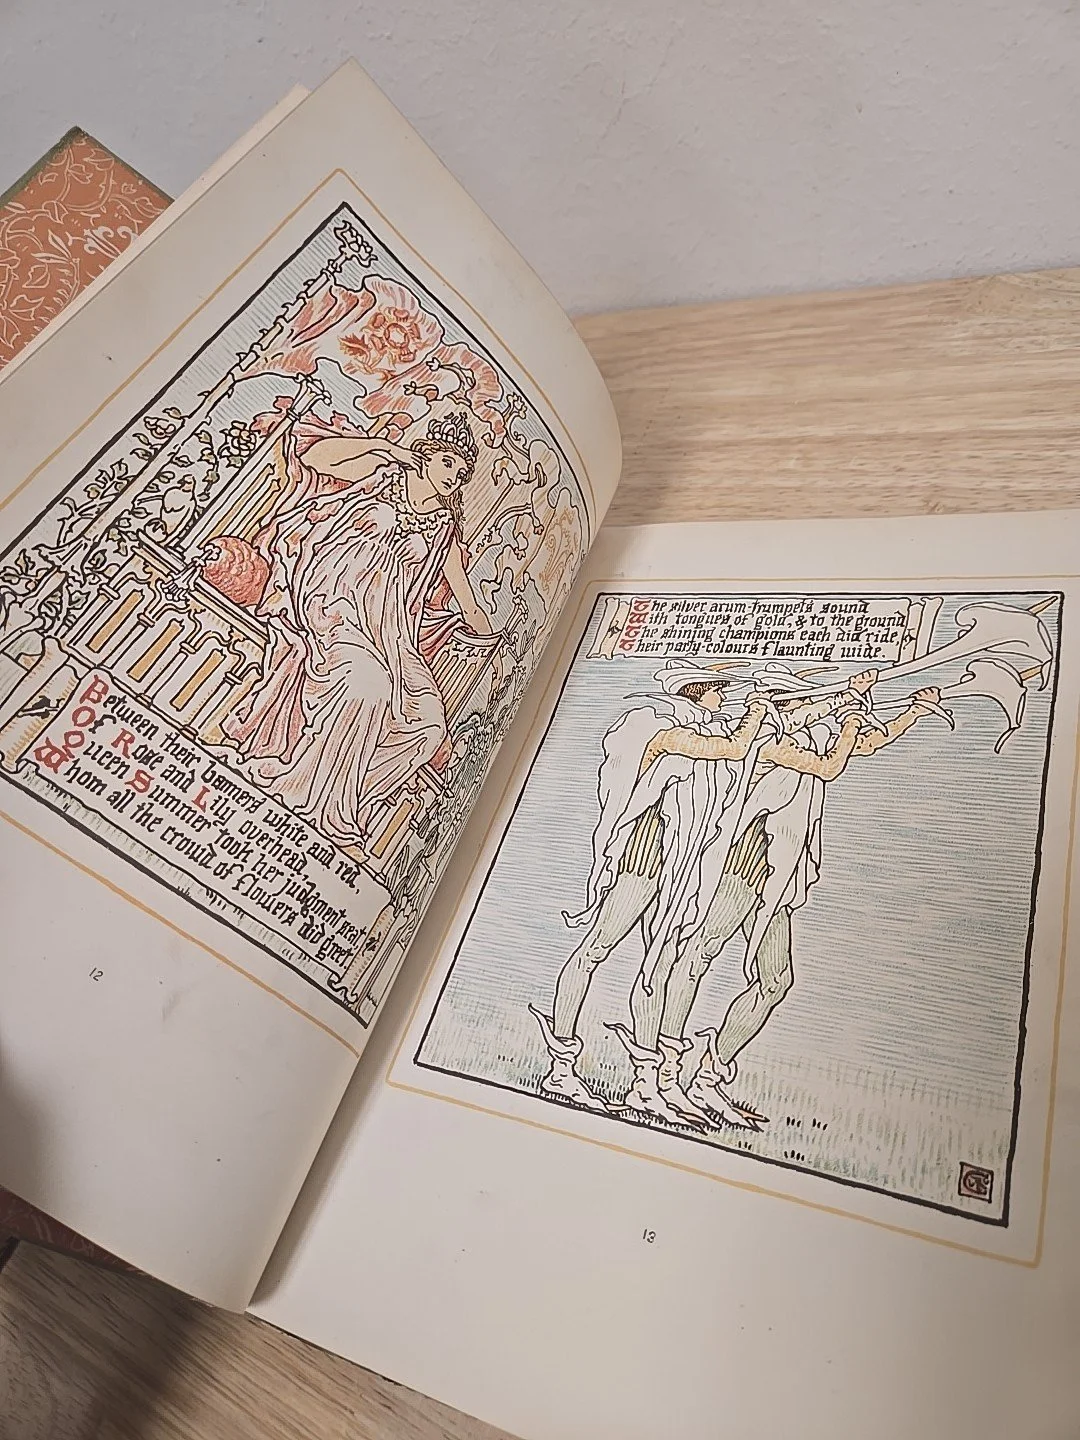 Between their banners white and red,
Of Rose and Lily overhead,
Queen Summer took her judgment seat,
Whom all the crowd of flowers did greet.
12
The silver arum-trumpets sound
With tongues of gold, & to the ground
The shining champions each did ride,
Their party-colours flaunting wide.
13